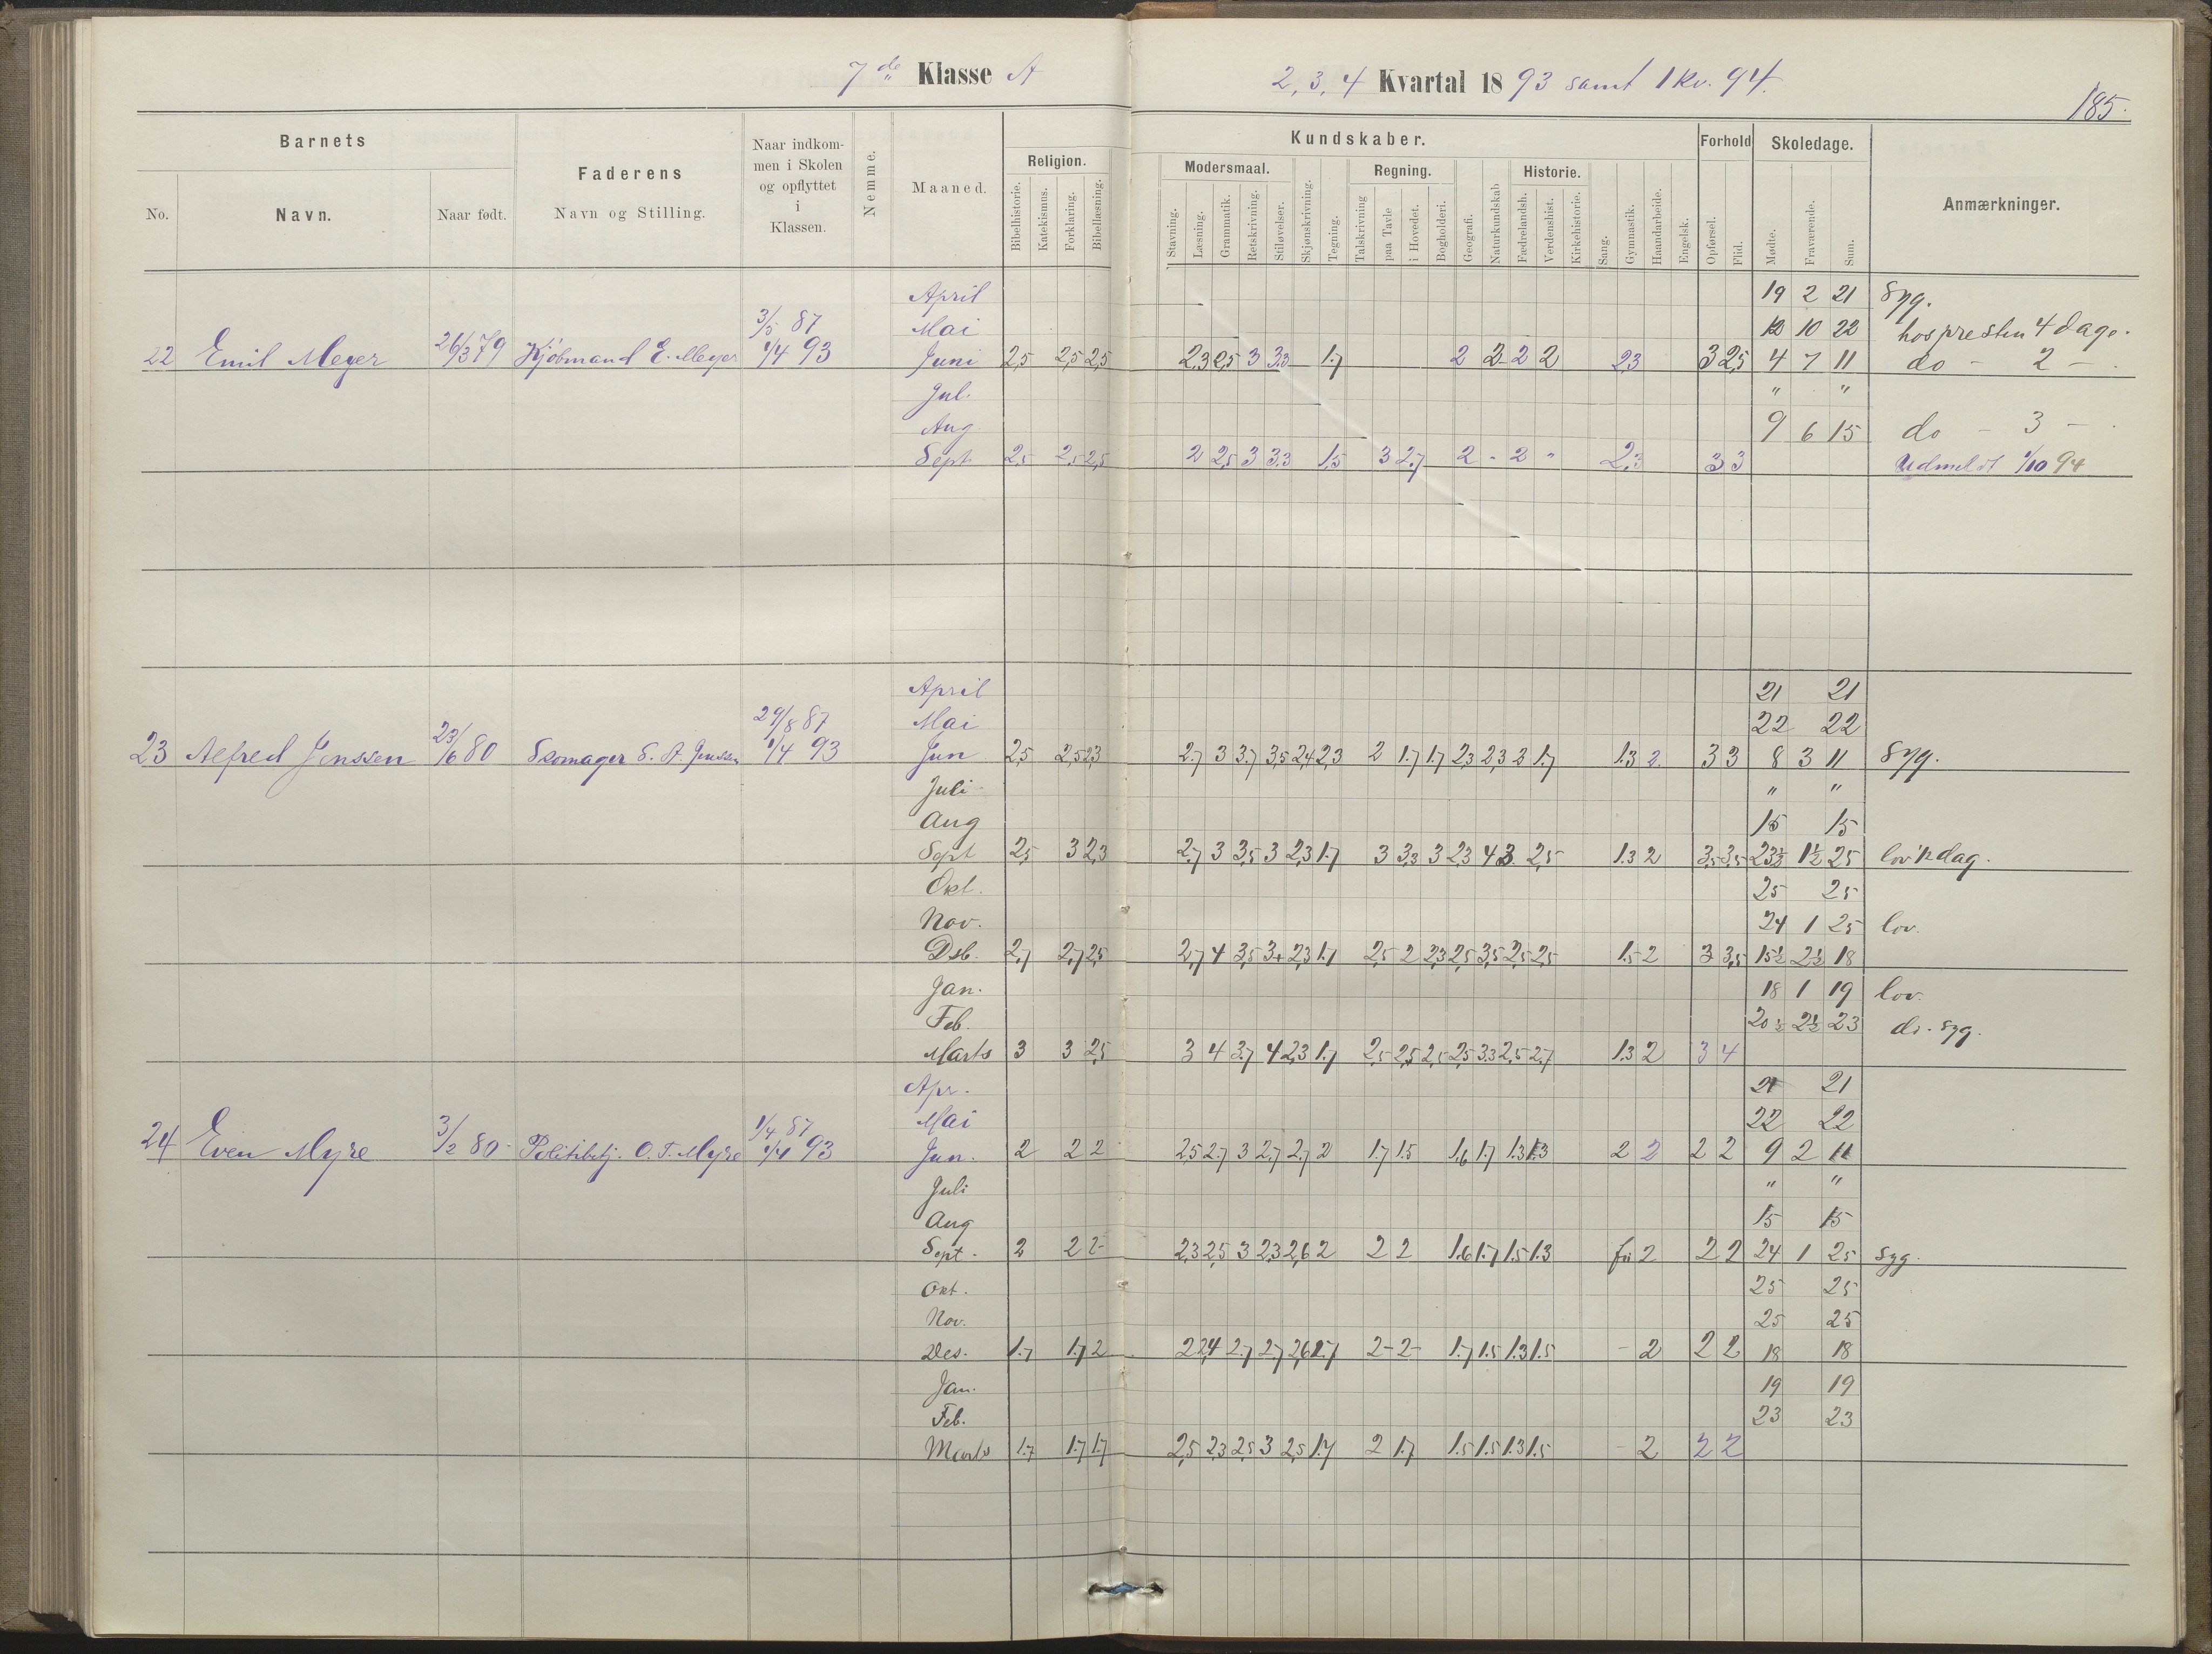 7de Klasse A
2, 3, 4 Kvartal 1893 samt 1 kv. 94.
185.
Barnets
No.
Navn.
Naar født.
Faderens
Navn og Stilling.
Naar indkom-
men i Skolen
og opflyttet
i
Klassen.
Nemme.
Maaned.
Religion.
Bibelhistorie.
Katekismus.
Forklaring.
Bibellæsning.
Kundskaber.
Modersmaal.
Stavning.
Læsning.
Grammatik.
Retskrivning.
Stiløvelser.
Skjønskrivning.
Tegning.
Regning.
Talskrivning
paa Tavle
i Hovedet.
Bogholderi.
Geografi.
Naturkundskab
Historie.
Fædrelandsh.
Verdenshist.
Kirkehistorie.
Sang.
Gymnastik.
Haandarbeide.
Engelsk.
Forhold
Opførsel.
Flid.
Skoledage.
Mødte.
Fraværende.
Sum.
Anmærkninger.
April 19 2 21 Syg.
3/5 87 Mai 12 10 22 hos presten 4 dage.
22 Emil Meyer 26/3 79 Kjøbmand E. Meyer 1/4 93 Juni 2,5 2,5 2,5 2,3 2,5 3 3.3 1.7 2 2 2 2 2,3 3 2,5 4 7 11 do - 2 -
Jul. " "
Aug 9 6 15 do - 3 -
Sept 2,5 2,5 2,5 2 2,5 3 3.3 1,5 3 2.7 2 - 2 " 2,3 3 3 Udmeldt 1/10 94
April 21 21
29/8 87 Mai 22 22
23 Alfred Jenssen 23/6 80 Skomager S. A. Jenssen 1/4 93 Jun 2,5 2,5 2,3 2.7 3 3.7 3,5 2,4 2,3 2 1.7 1.7 2,3 2,3 3 1.7 1.3 2. 3 3 8 3 11 Syg.
Juli " "
Aug 15 15
Sept 2,5 3 2,3 2.7 3 3,5 3 2,3 1.7 3 3,3 3 2,3 4 3. 2,5 1.3 2 3,5 3,5 23½ 1½ 25 lov ½ dag.
Okt. 25 25
Nov. 24 1 25 lov.
Dsb. 2,7 2,7 2,5 2,7 4 3,5 3+ 2,3 1.7 2,5 2 2,3 2,5 3,5 2,5 2,5 1.5 2 3 3,5 15½ 2½ 18
Jan. 18 1 19 lov.
Feb. 20½ 2½ 23 do. syg.
Marts 3 3 2,5 3 4 3.7 4 2,3 1.7 2,5 2,5 2,5 2,5 3.3 2,5 2,7 1.3 2 3 4
Apr. 21 21
1/4 87 Mai 22 22
24 Even Myre 3/2 80 Politibetj. O. T. Myre 1/4 93 Jun. 2 2 2 2,5 2.7 3 2.7 2,7 2 1.7 1.5 1.6 1.7 1.3 1.3 2 2 2 2 9 2 11
Juli " "
Aug 15 15
Sept. 2 2 2 2,3 2,5 3 2,3 2,6 2 2 2 1.6 1.7 1.5 1.3 fri 2 2 2 24 1 25 syg.
Okt. 25 25
Nov. 25 25
Des. 1.7 1.7 2 2 2,4 2.7 2.7 2,6 1.7 2- 2- 1.7 1.5 1.3 1.5 - 2 2 2 18 18
Jan. 19 19
Feb. 23 23
Marts 1.7 1.7 1.7 2,5 2,3 2,5 3 2,5 1.7 2 1.7 1.5 1.5 1.3 1.5 - 2 2 2